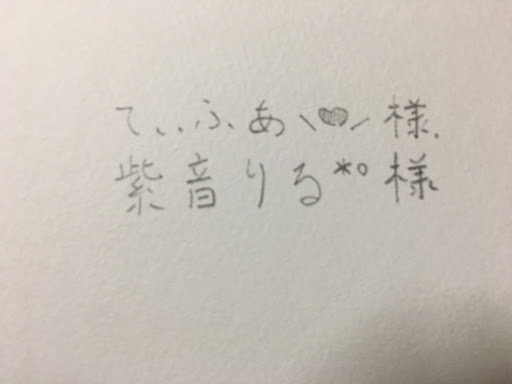 てぃふぁ\♥/様
紫音りる*°様